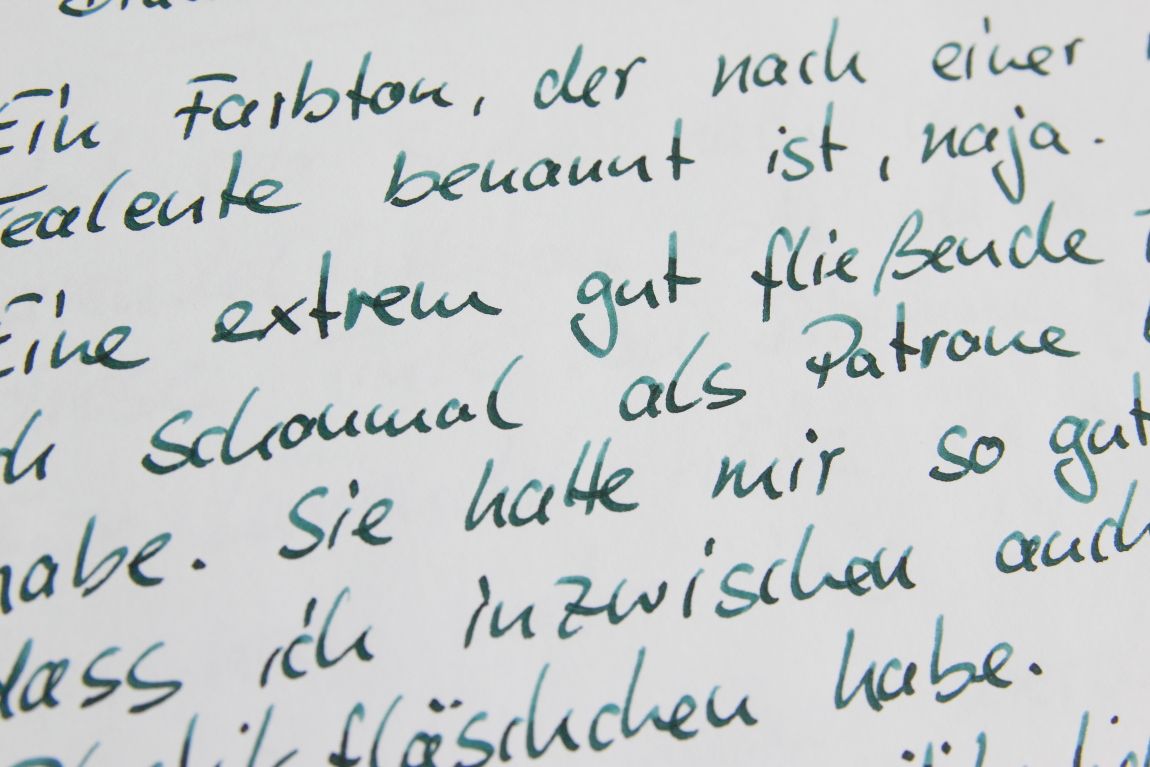 Ein Farbton, der nach einer
Tealente benannt ist, naja.
Eine extrem gut fließende
schonmal als Patrone
habe. Sie hatte mir so gut
dass ich inzwischen auch
fläschchen habe.